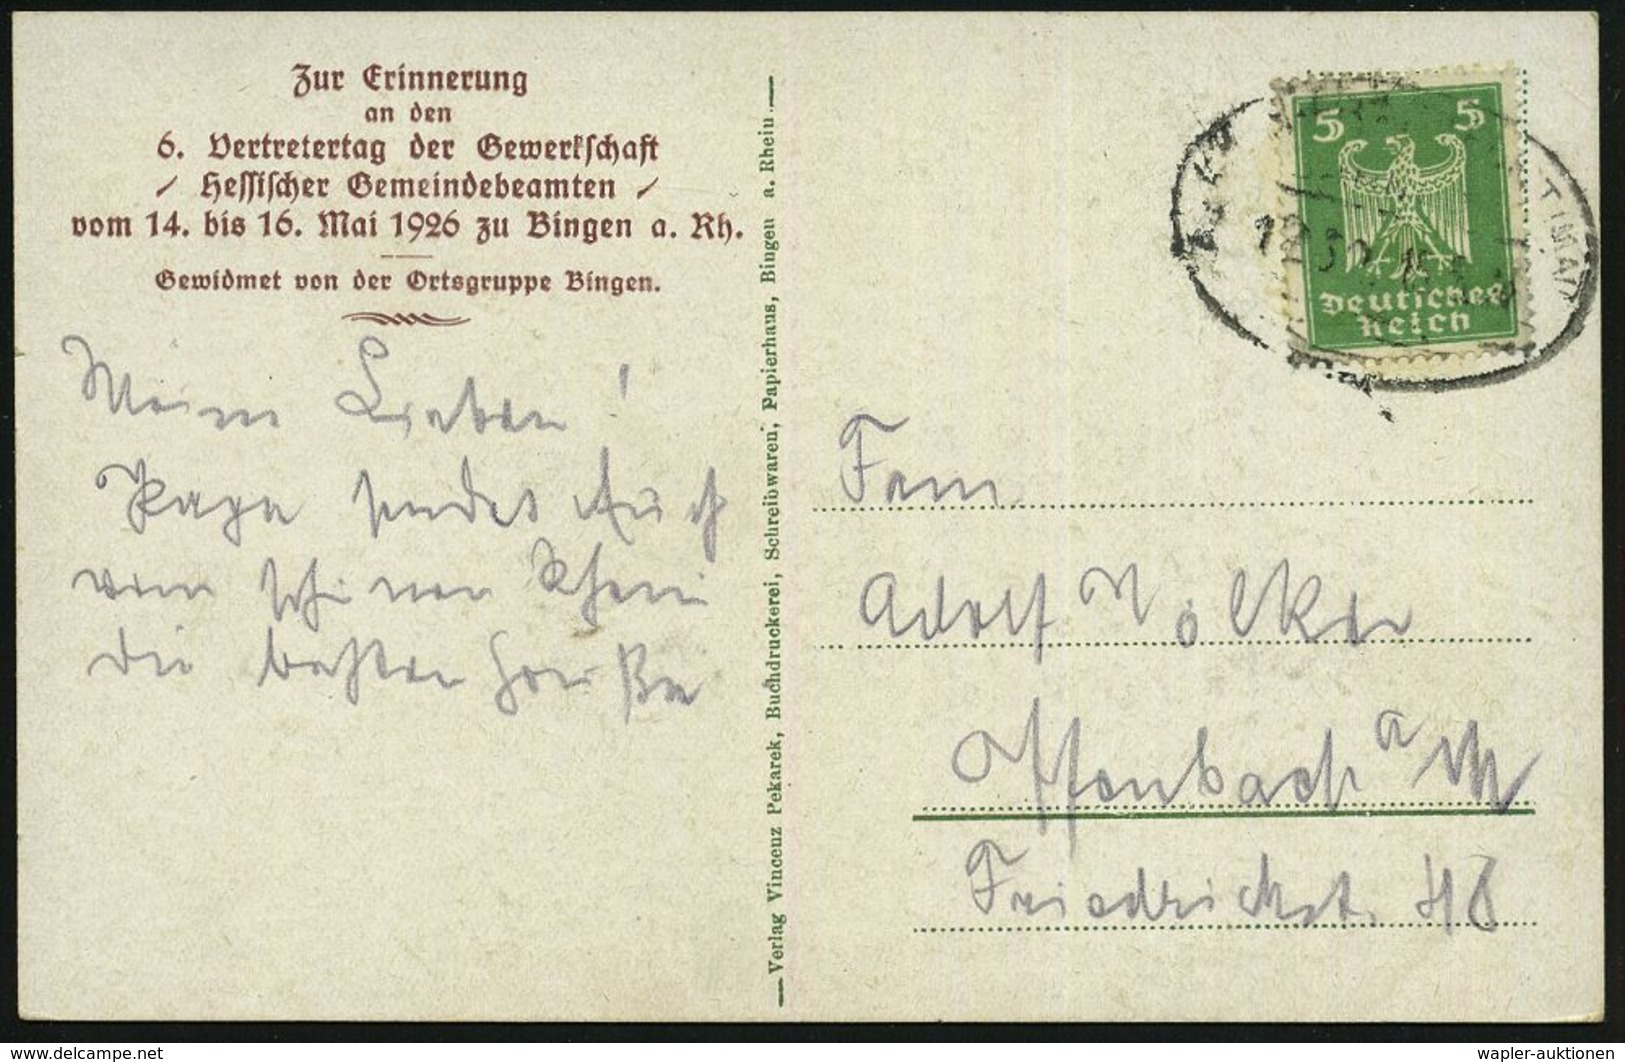 Zur Erinnerung
an den
6. Vertretertag der Gewerkschaft
Hessischer Gemeindebeamten
vom 14. bis 16. Mai 1926 zu Bingen a. Rh.
Gewidmet von der Ortsgruppe Bingen.
Meine Lieben!
Papa sendet Euch
vom schönen Rhein
die besten Grüße
Verlag Vincenz Pekarek, Buchdruckerei, Schreibwaren, Papierhaus, Bingen a. Rhein
5 5
Deutsches
Reich
Fam.
Adolf Völker
Offenbach a M
Friedrichst. 48
www.delcampe.net
wapler-auktionen